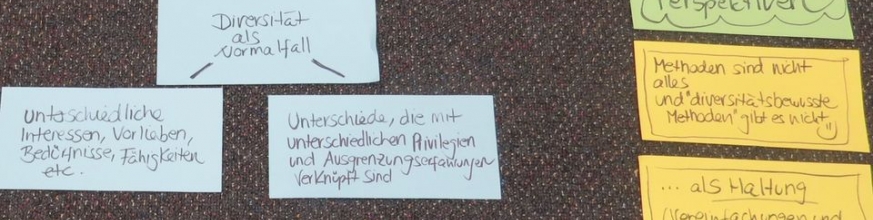 Diversität
als
Normalfall
Unterschiedliche
Interessen, Vorlieben,
Bedürfnisse, Fähigkeiten
etc.
Unterschiede, die mit
unterschiedlichen Privilegien
und Ausgrenzungserfahrungen
verknüpft sind
Perspektiven
Methoden sind nicht
alles
und "diversitätsbewusste
Methoden" gibt es nicht
... als Haltung